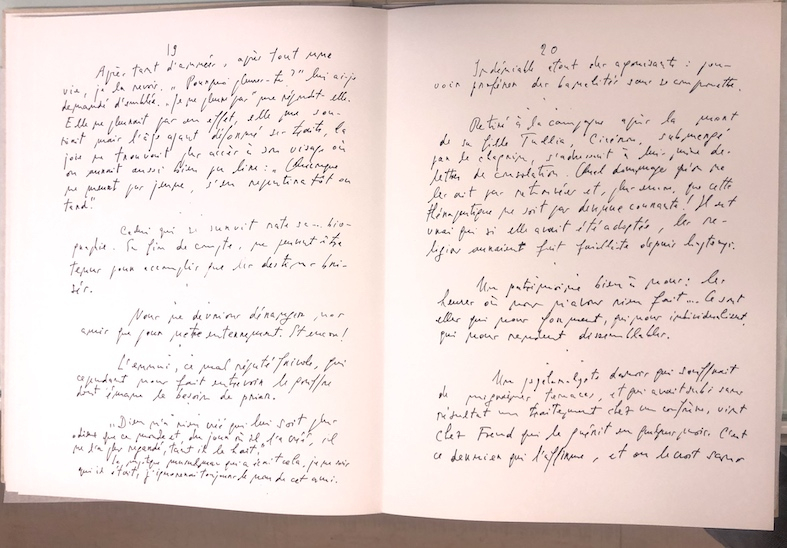 19
Après tant d'années, après tout une
vie, je la revois. „Pourquoi pleures-tu?" lui ai-je
demandé d'emblée. „Je ne pleure pas" me répondit-elle.
Elle ne pleurait pas en effet, elle me sou-
riait mais l'âge ayant déformé ses traits, la
joie ne trouvait plus accès à son visage où
on aurait aussi bien pu lire: „Quiconque
ne meurt pas jeune, s'en repentira tôt ou
tard."
Celui qui se survit rate sa... bio-
graphie. En fin de compte, ne peuvent être
tenus pour accomplis que les destins bri-
sés.
Nous ne devrions déranger nos
amis que pour notre enterrement. Et encore!
L'ennui, ce mal réputé frivole, qui
cependant nous fait entrevoir le gouffre
dont émane le besoin de prier.
„Dieu n'a rien créé qui lui soit plus
odieux que ce monde et du jour où il l'a créé, il
ne l'a plus regardé, tant il le hait."
Le mystique musulman qui a écrit cela, je ne sais
qui il était, j'ignorerai toujours le nom de cet ami.
20
Indéniable atout des agonisants: pou-
voir proférer des banalités sans se compromettre.
Retiré à la campagne après la mort
de sa fille Tullia, Cicéron, submergé
par le chagrin, s'adressait à lui-même des
lettres de consolation. Quel dommage qu'on ne
les ait pas retrouvées et, plus encore, que cette
thérapeutique ne soit pas devenue courante! Il est
vrai que si elle avait été adoptée, les re-
ligions auraient fait faillite depuis longtemps.
Un patrimoine bien à nous: les
heures où nous n'avons rien fait... Ce sont
elles qui nous forment, qui nous individualisent,
qui nous rendent dissemblables.
Un psychanalyste danois qui souffrait
de migraines tenaces, et qui avait subi sans
résultat un traitement chez un confrère, vint
chez Freud qui le guérit en quelques mois. C'est
ce dernier qui l'affirme, et on le croit sans